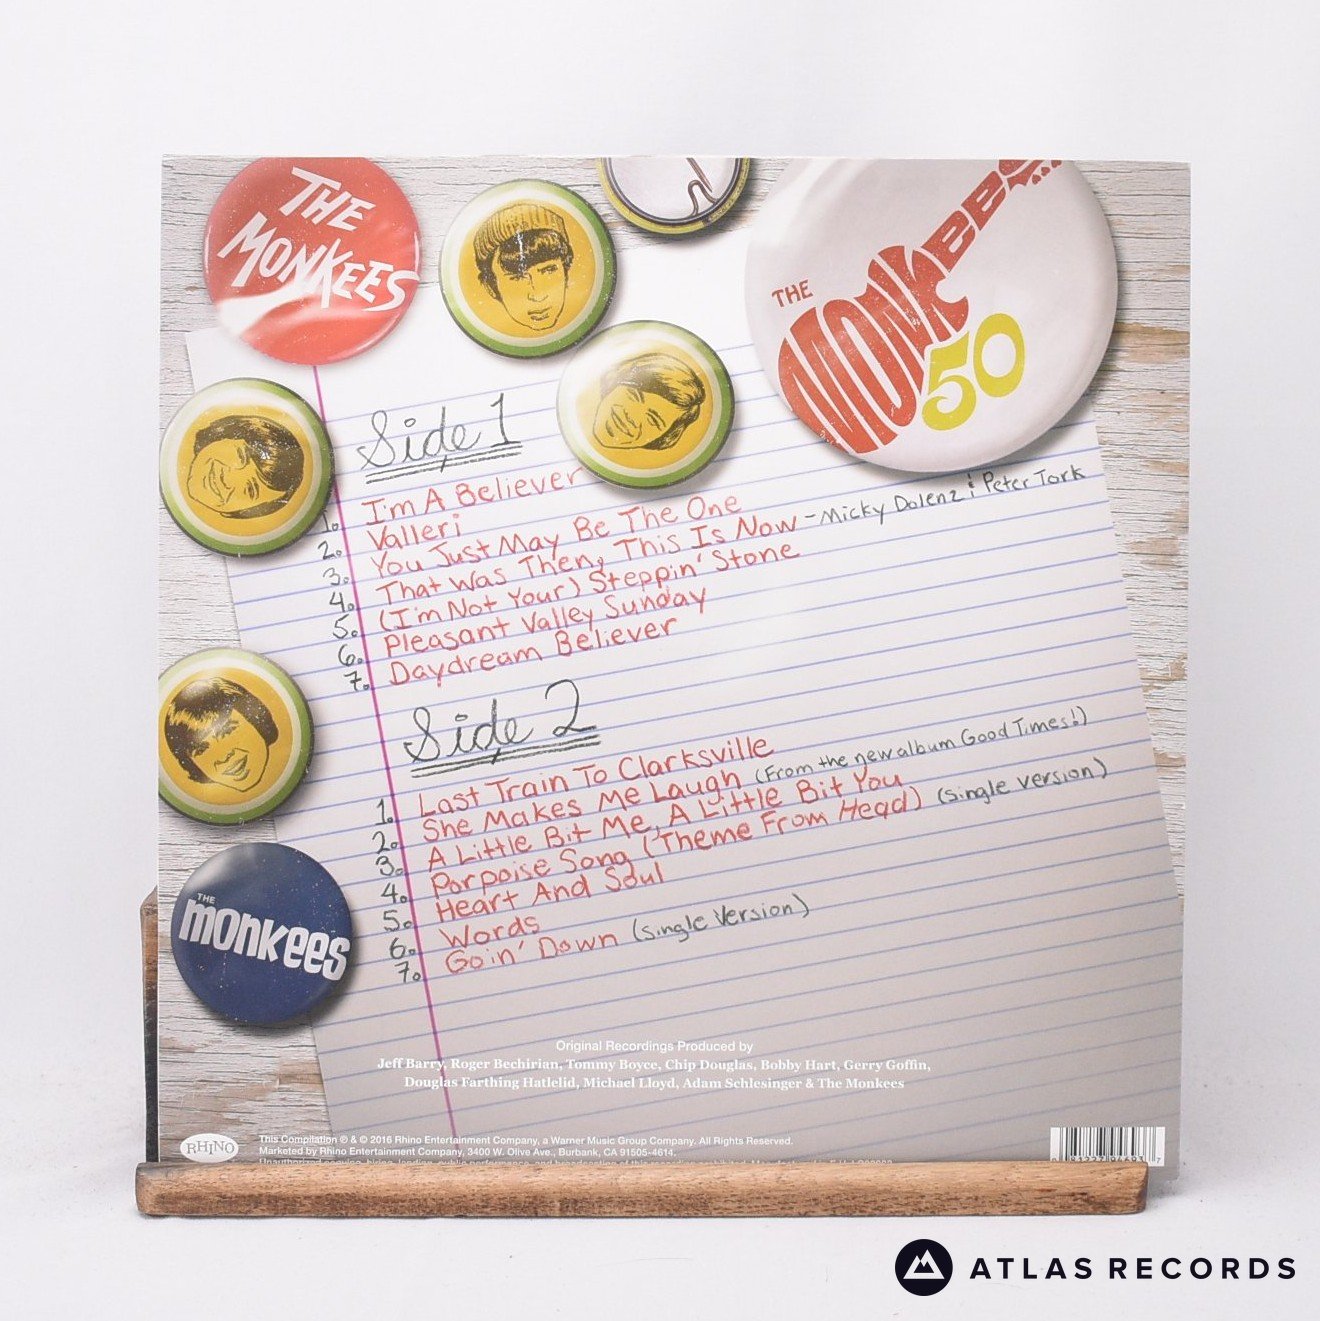 THE
MONKEES
THE
MONKEES
50
Side 1
1. I'm A Believer
2. Valleri
3. You Just May Be The One
4. That Was Then, This Is Now - Micky Dolenz & Peter Tork
5. (I'm Not Your) Steppin' Stone
6. Pleasant Valley Sunday
7. Daydream Believer
Side 2
1. Last Train To Clarksville
2. She Makes Me Laugh (From the new album Good Times!)
3. A Little Bit Me, A Little Bit You
4. Porpoise Song (Theme From Head) (Single version)
5. Heart And Soul
6. Words
7. Goin' Down (Single Version)
THE
monkees
Original Recordings Produced by
Jeff Barry, Roger Bechirian, Tommy Boyce, Chip Douglas, Bobby Hart, Gerry Goffin,
Douglas Farthing Hatlelid, Michael Lloyd, Adam Schlesinger & The Monkees
RHINO
This Compilation ℗ & © 2016 Rhino Entertainment Company, a Warner Music Group Company. All Rights Reserved.
Marketed by Rhino Entertainment Company, 3400 W. Olive Ave., Burbank, CA 91505-4614.
ATLAS RECORDS